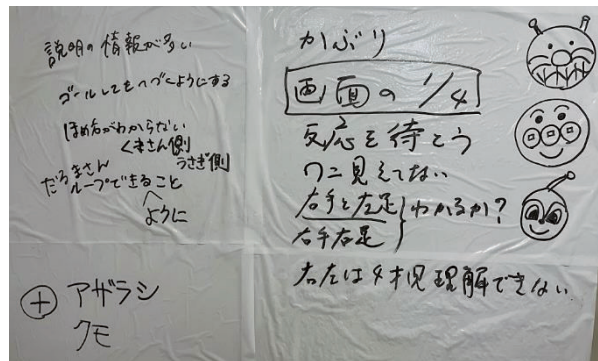 説明の情報が多い
ゴールしてもつづくようにする
ほめ方がわからない
くまさん側
うさぎ側
だるまさん
ループできること
ように
⊕ アザラシ
クモ
かぶり
画面の 1/4
反応を待とう
ワニ見えてない
右手と左足
右手右足
わかるか?
右左は4才児理解できない